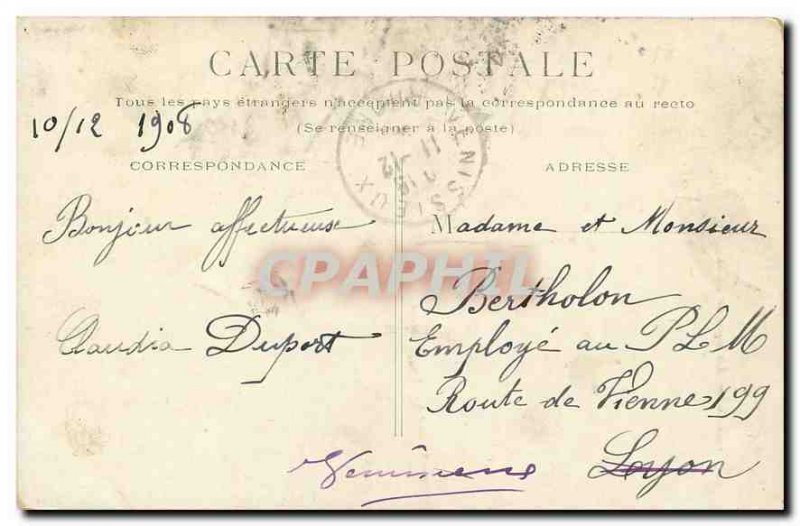 CARTE POSTALE
Tous les pays étrangers n'acceptent pas la correspondance au recto
(Se renseigner à la poste)
10/12 1908
CORRESPONDANCE
ADRESSE
VENISSIEUX
Bonjour affectueuse
Claudia Duport
Madame et Monsieur
Bertholon
Employé au PLM
Route de Vienne 199
Lyon
CPAPHIL